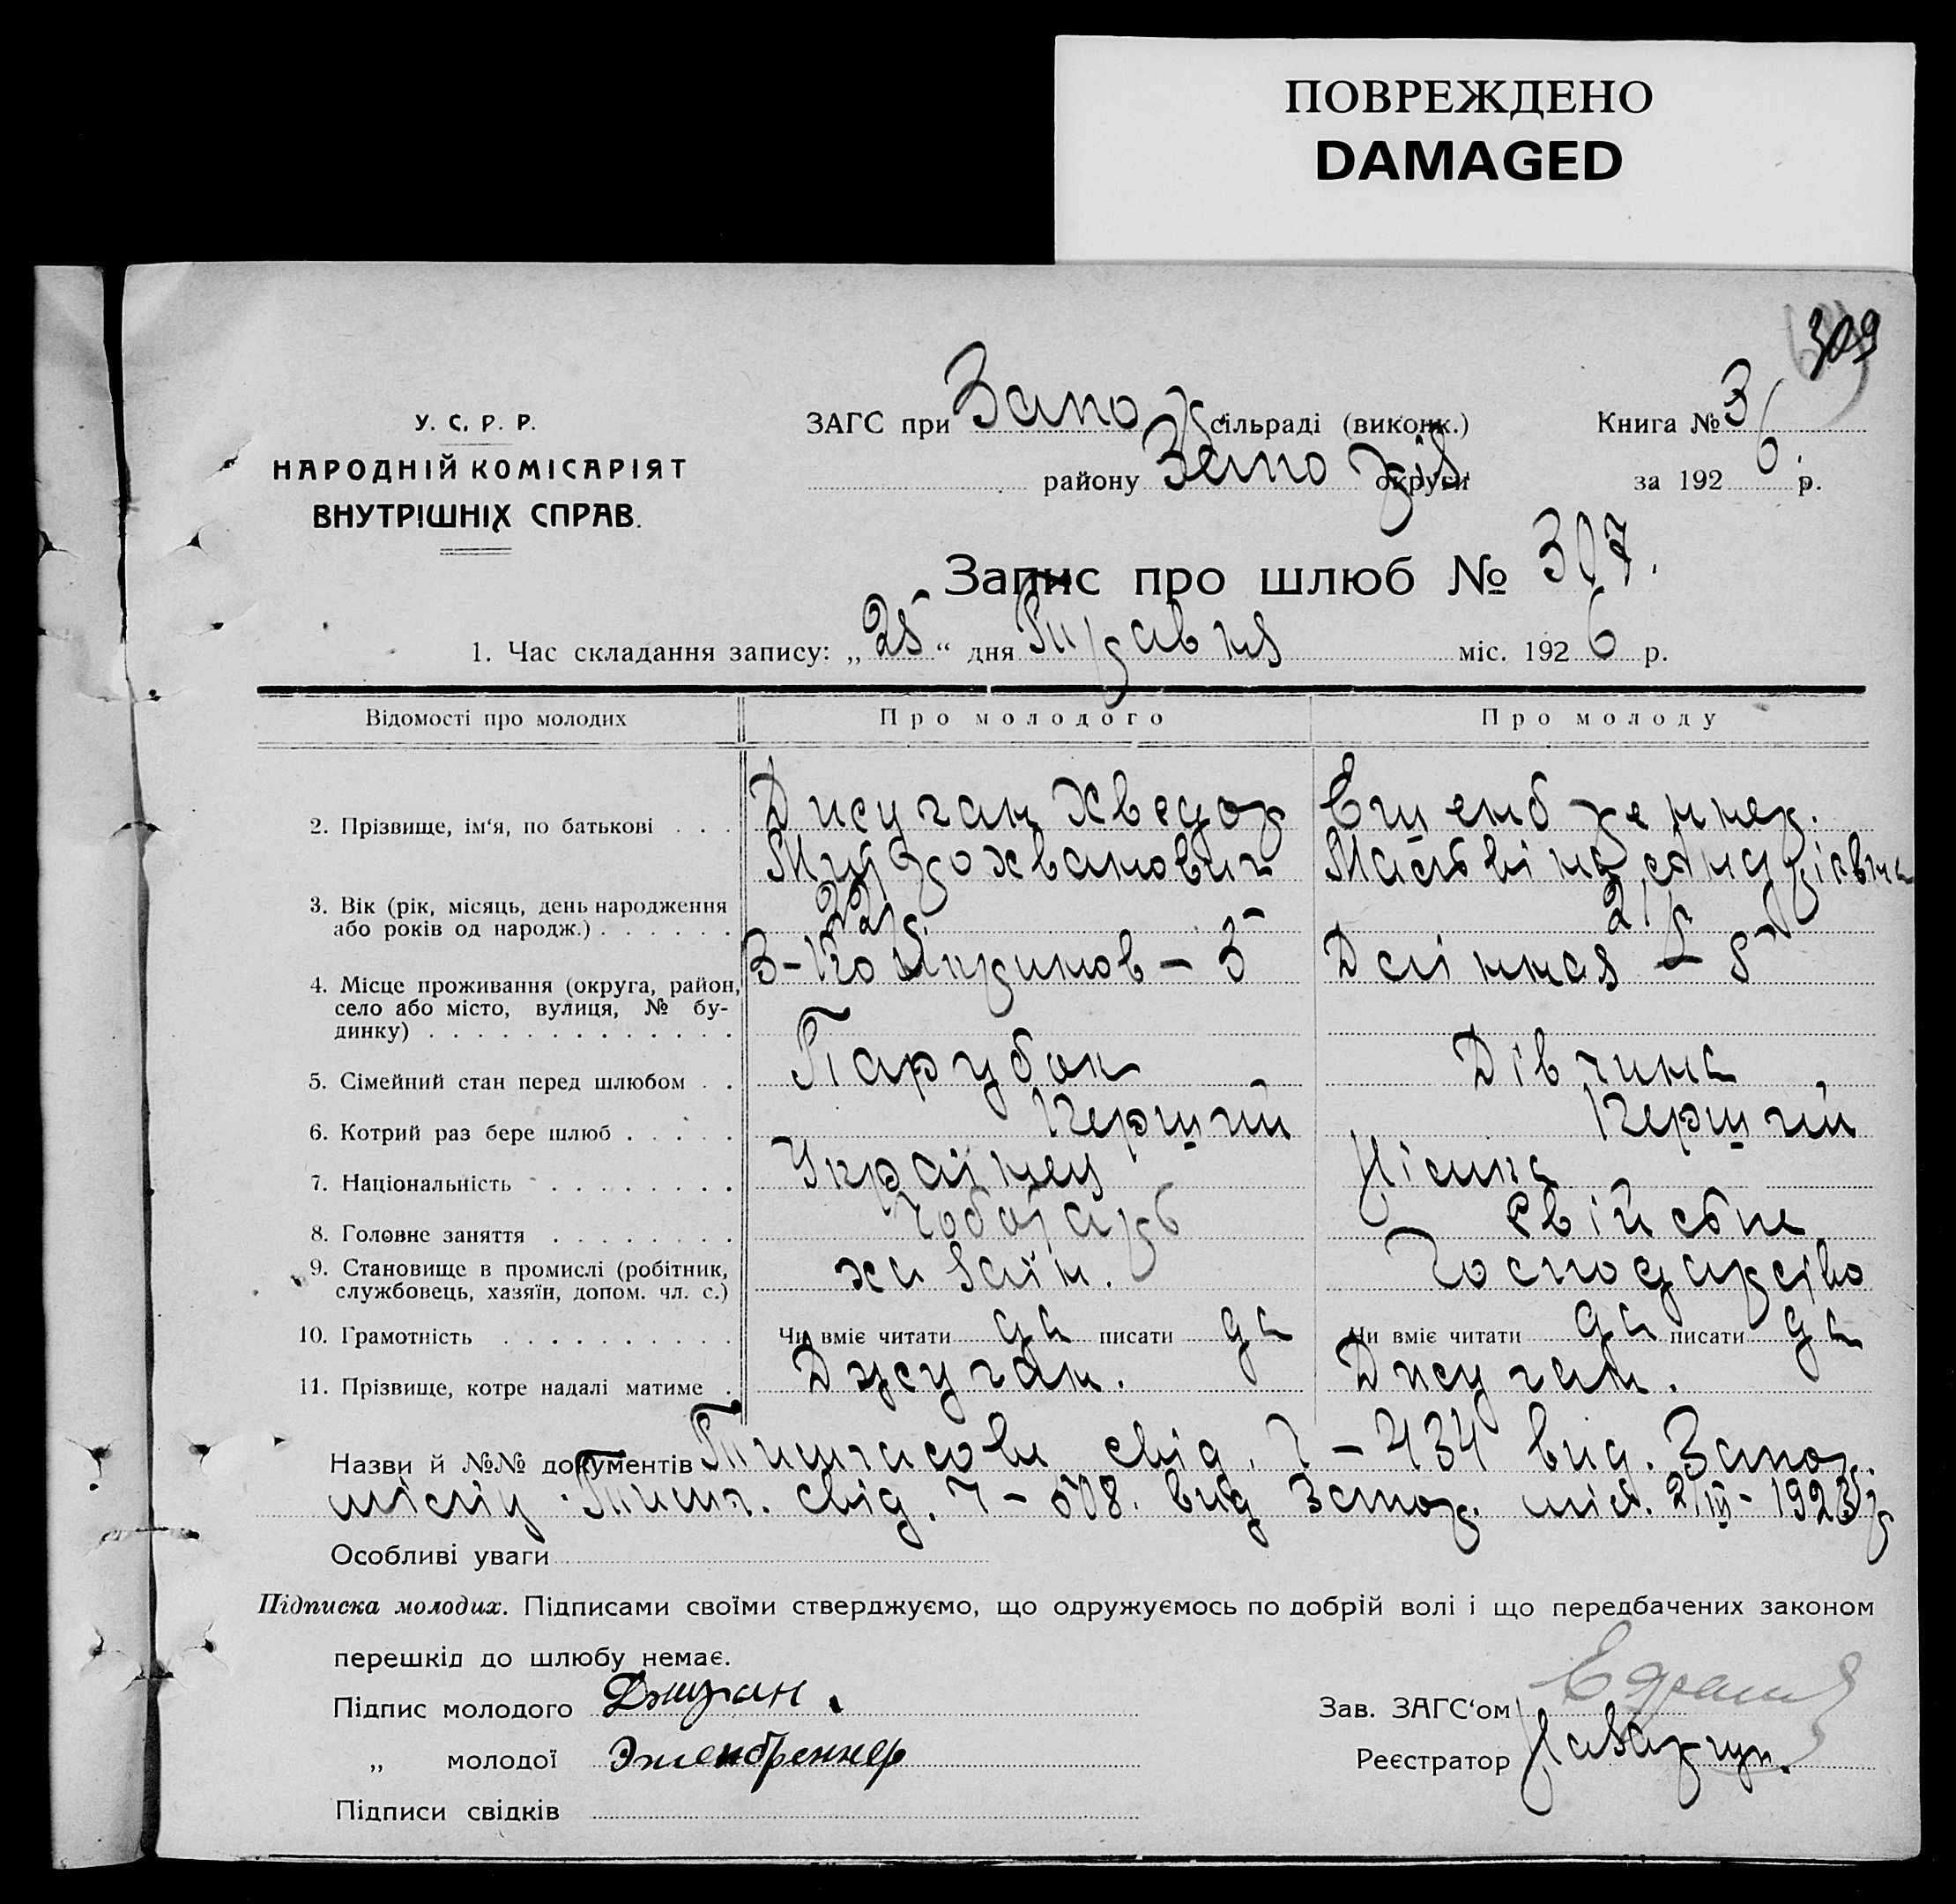 ПОВРЕЖДЕНО
DAMAGED
309
У. С. Р. Р.
НАРОДНІЙ КОМІСАРІЯТ
ВНУТРІШНІХ СПРАВ.
ЗАГС при Запор сільраді (виконк.)
Книга № 3
району Запоріз. округи
за 1926 р.
Запис про шлюб № 307.
1. Час складання запису: „25“ дня Травня міс. 1926 р.
Відомості про молодих
Про молодого
Про молоду
2. Прізвище, ім‘я, по батькові
Джуган Хведор
Митрохванович
Ешенбреннер.
3. Вік (рік, місяць, день народження
або років од народж.)
22 р
21 р
4. Місце проживання (округа, район,
село або місто, вулиця, № бу-
динку)
5. Сімейний стан перед шлюбом
Парубок
Дівчина
6. Котрий раз бере шлюб
Перший
Перший
7. Національність
Українец
Німка
8. Головне заняття
Чоботарь
Свійське
9. Становище в промислі (робітник,
службовець, хазяїн, допом. чл. с.)
хазаїн.
Господарство
10. Грамотність
Чи вміє читати да писати да
Чи вміє читати да писати да
11. Прізвище, котре надалі матиме
Джуган.
Джуган.
Назви й №№ документів Тимчасове свід. 7-434 вид. Запор.
міліц. Тимч. свід. 7-508. вид Запор. міл. 2/III-1923 р
Особливі уваги
Підписка молодих. Підписами своїми стверджуємо, що одружуємось по добрій волі і що передбачених законом
перешкід до шлюбу немає.
Підпис молодого Джуган.
Зав. ЗАГС‘ом
„ молодої Эшенбреннер
Реєстратор
Підписи свідків